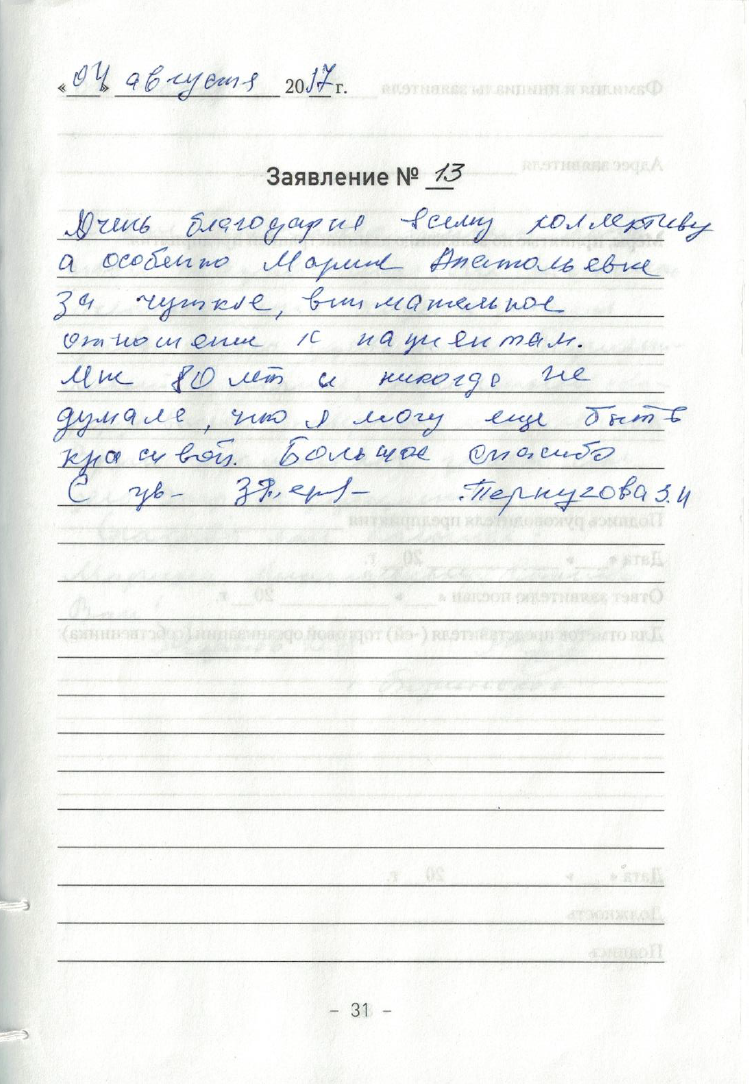 «04» августа 2017 г.
Заявление № 13
Очень благодарна всему коллективу
а особенно Марине Анатольевне
за чуткое, внимательное
отношение к пациентам.
Мне 80 лет и никогда не
думала, что я могу еще быть
красивой. Большое спасибо
С ув-
- 31 -